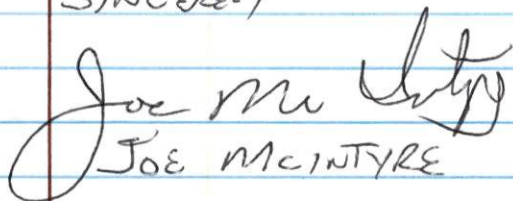 SINCERELY
Joe McIntyre
JOE MCINTYRE